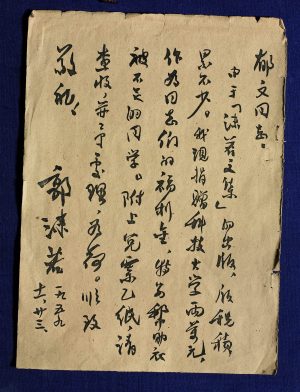 郁文同志：
由于「沫若文集」的出版，版税积
累不少。我现捐赠科技大学两万元，
作为同志们的福利金，特为帮助衣
被不足的同学。附上兑票乙纸，请
查收，并予处理为荷。顺致
敬礼！
郭沫若
一九五九
十一、廿三、